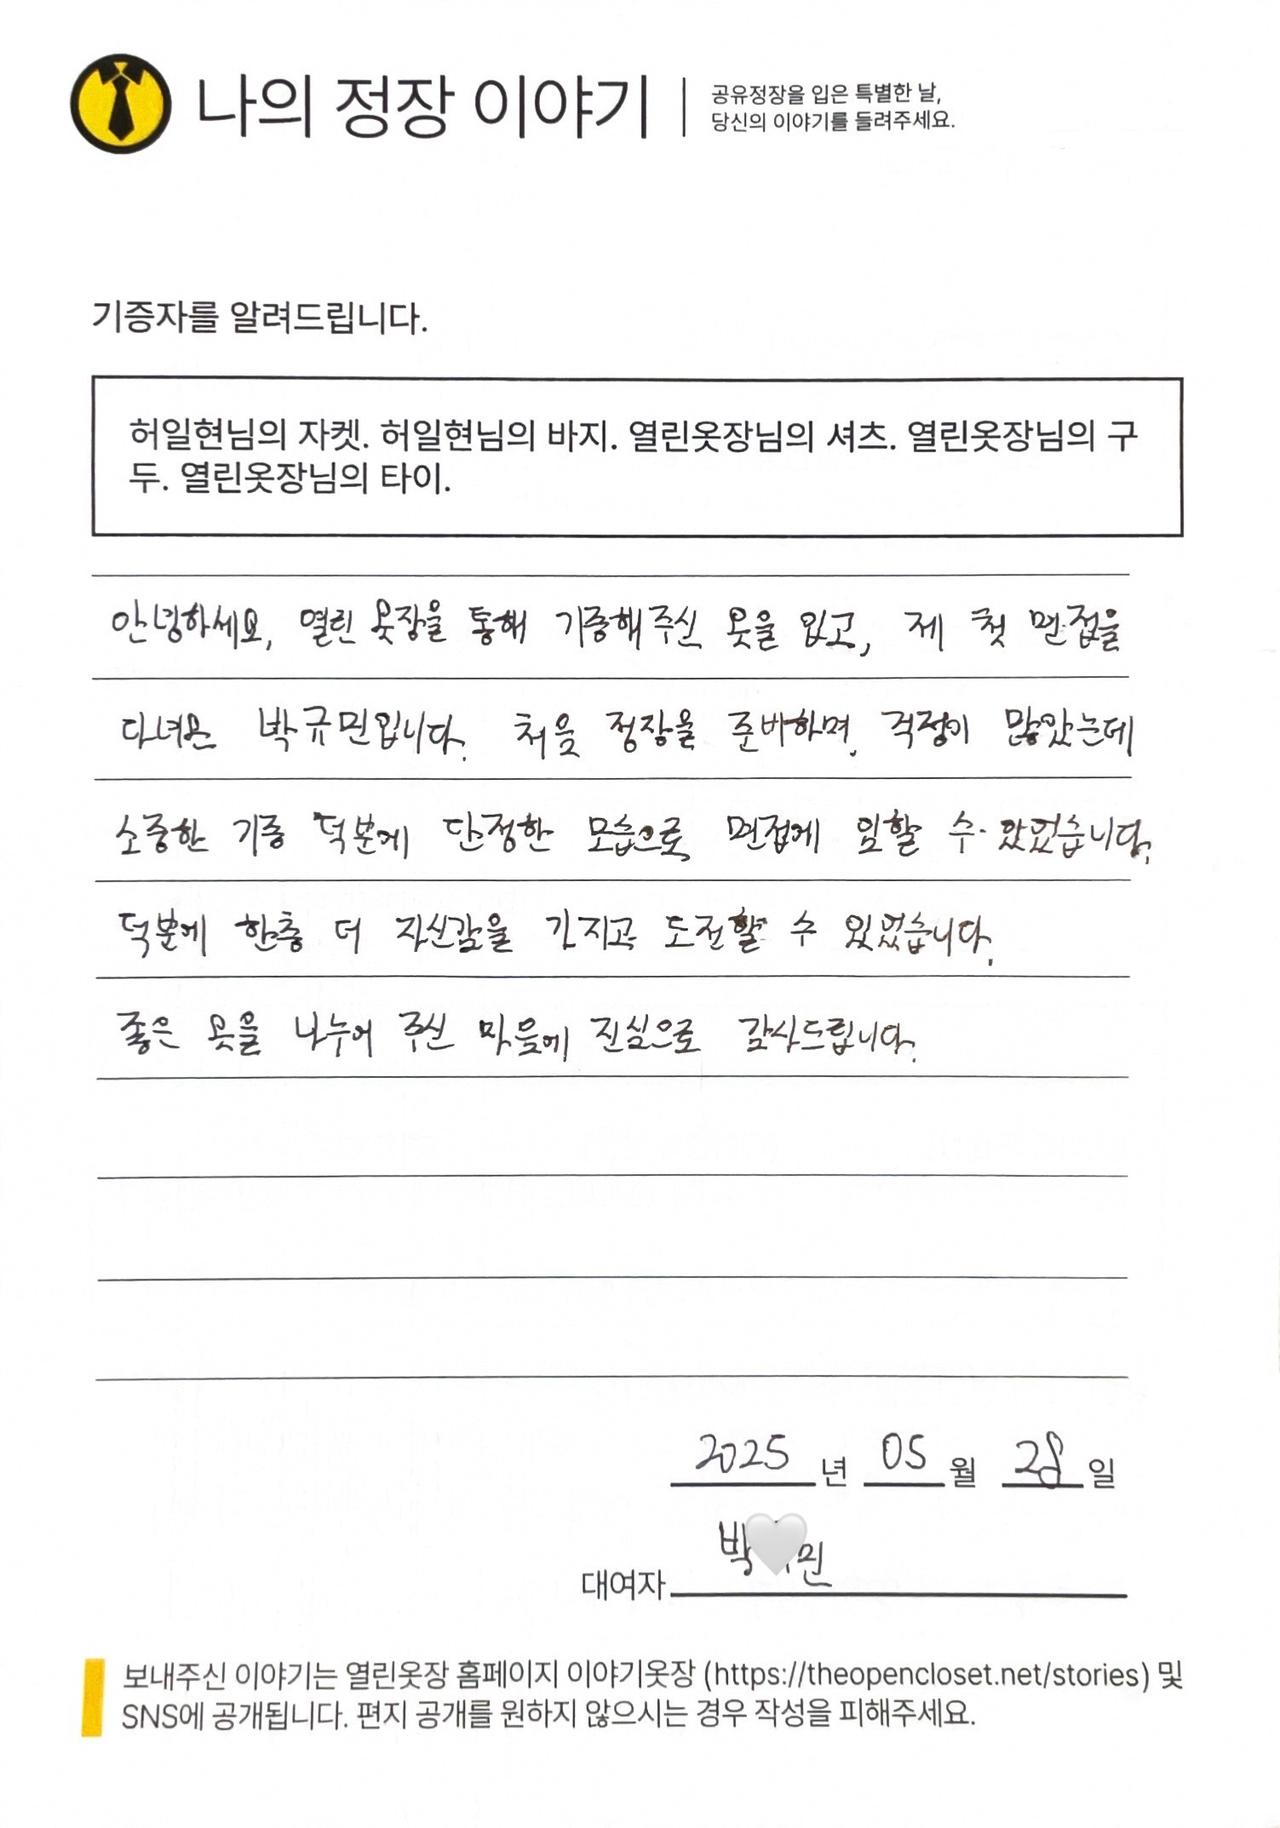 나의 정장 이야기
공유정장을 입은 특별한 날,
당신의 이야기를 들려주세요.
기증자를 알려드립니다.
허일현님의 자켓. 허일현님의 바지. 열린옷장님의 셔츠. 열린옷장님의 구
두. 열린옷장님의 타이.
안녕하세요, 열린 옷장을 통해 기증해주신 옷을 입고, 제 첫 면접을
다녀온 박규민입니다. 처음 정장을 준비하며, 걱정이 많았는데
소중한 기증 덕분에 단정한 모습으로 면접에 임할 수 있었습니다.
덕분에 한층 더 자신감을 가지고 도전할 수 있었습니다.
좋은 옷을 나누어 주신 마음에 진심으로 감사드립니다.
2025 년 05 월 28 일
박 민
대여자
보내주신 이야기는 열린옷장 홈페이지 이야기옷장 (https://theopencloset.net/stories) 및
SNS에 공개됩니다. 편지 공개를 원하지 않으시는 경우 작성을 피해주세요.